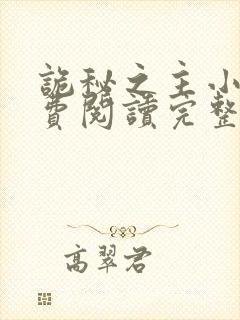 詭秘之主小
費閱讀完整
高翠君